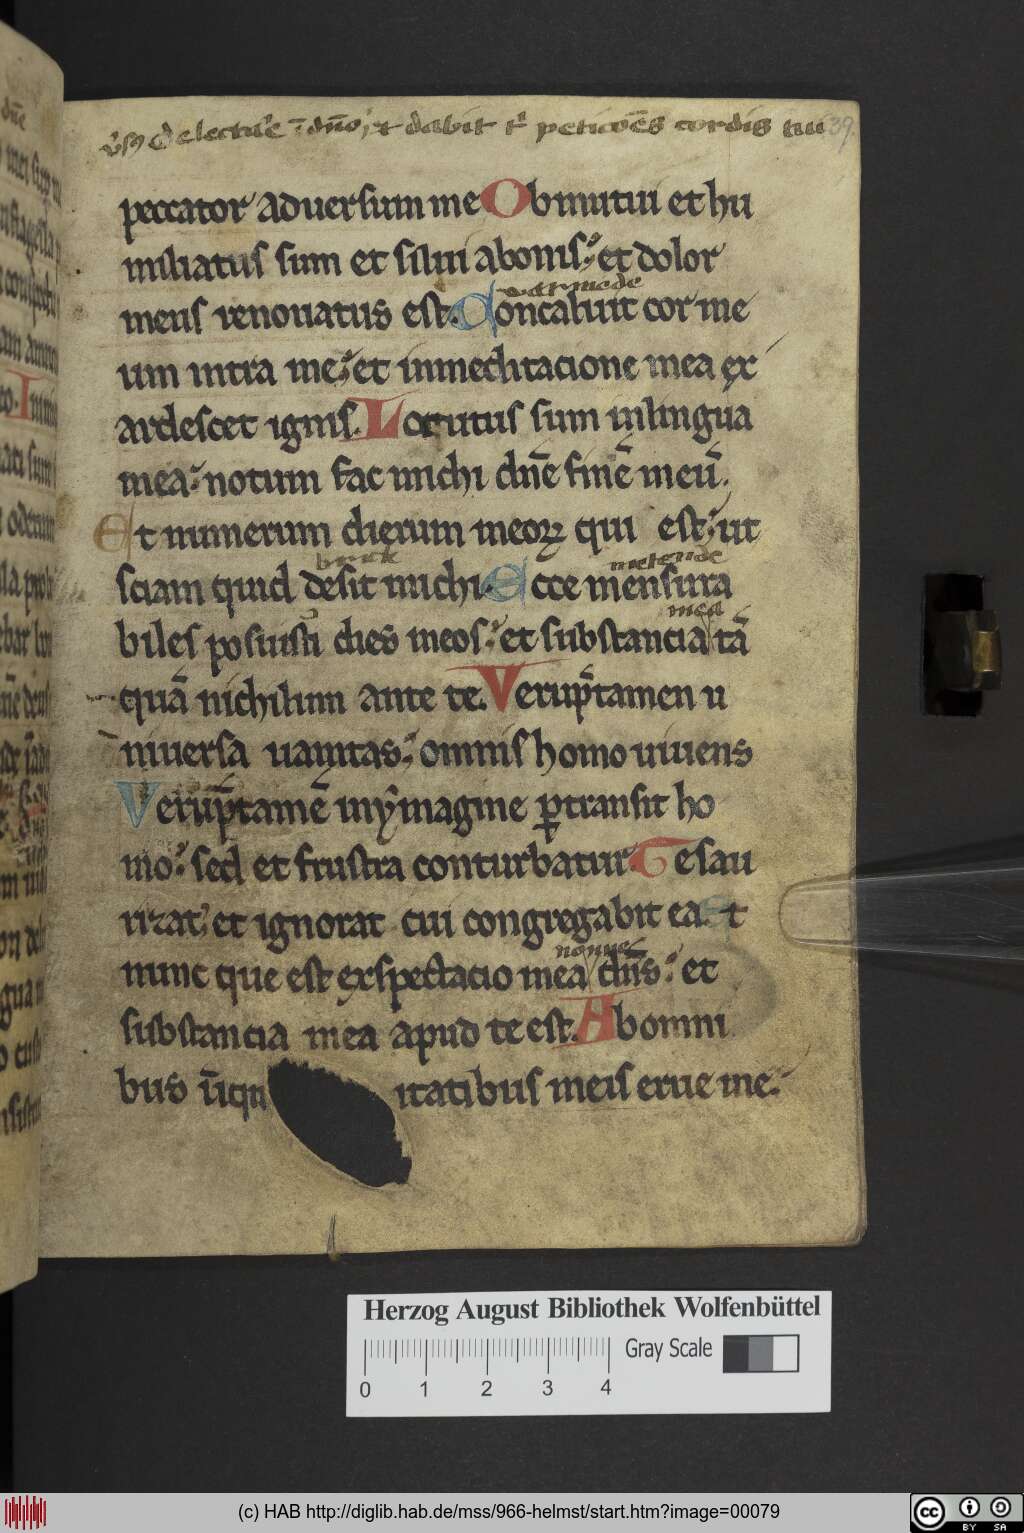 vsꝫ Delectar̄e ī dn̄o, et dabit tͥ peticōēs cordis tui 39
peccator aduersum me Obmutui et hu
miliatus sum et silui abonis: et dolor
varmede
meus renouatus est. Concaluit cor me
um intra me: et inmeditacione mea ex
ardescet ignis. Locutus sum inlingua
mea: notum fac michi dn̄e finē meū.
Et numerum dierum meoꝝ qui est: ut
brick metende
sciam quid desit michi. Ecce mensura
mea
biles posuisti dies meos: et substancia tā
quā nichilum ante te. Verūptamen u
niuersa uanitas: omnis homo uiuens
Verūptamē inymagine ꝑtransit ho
mo: sed et frustra conturbatur. Tesau
rizat: et ignorat cui congregabit ea. Et
nonne
nunc que est exspectacio mea dn̄s: et
substancia mea apud te est. Abomni
bus īiqu itatibus meis erue me.
Herzog August Bibliothek Wolfenbüttel
0 1 2 3 4 Gray Scale
(c) HAB http://diglib.hab.de/mss/966-helmst/start.htm?image=00079
cc BY SA